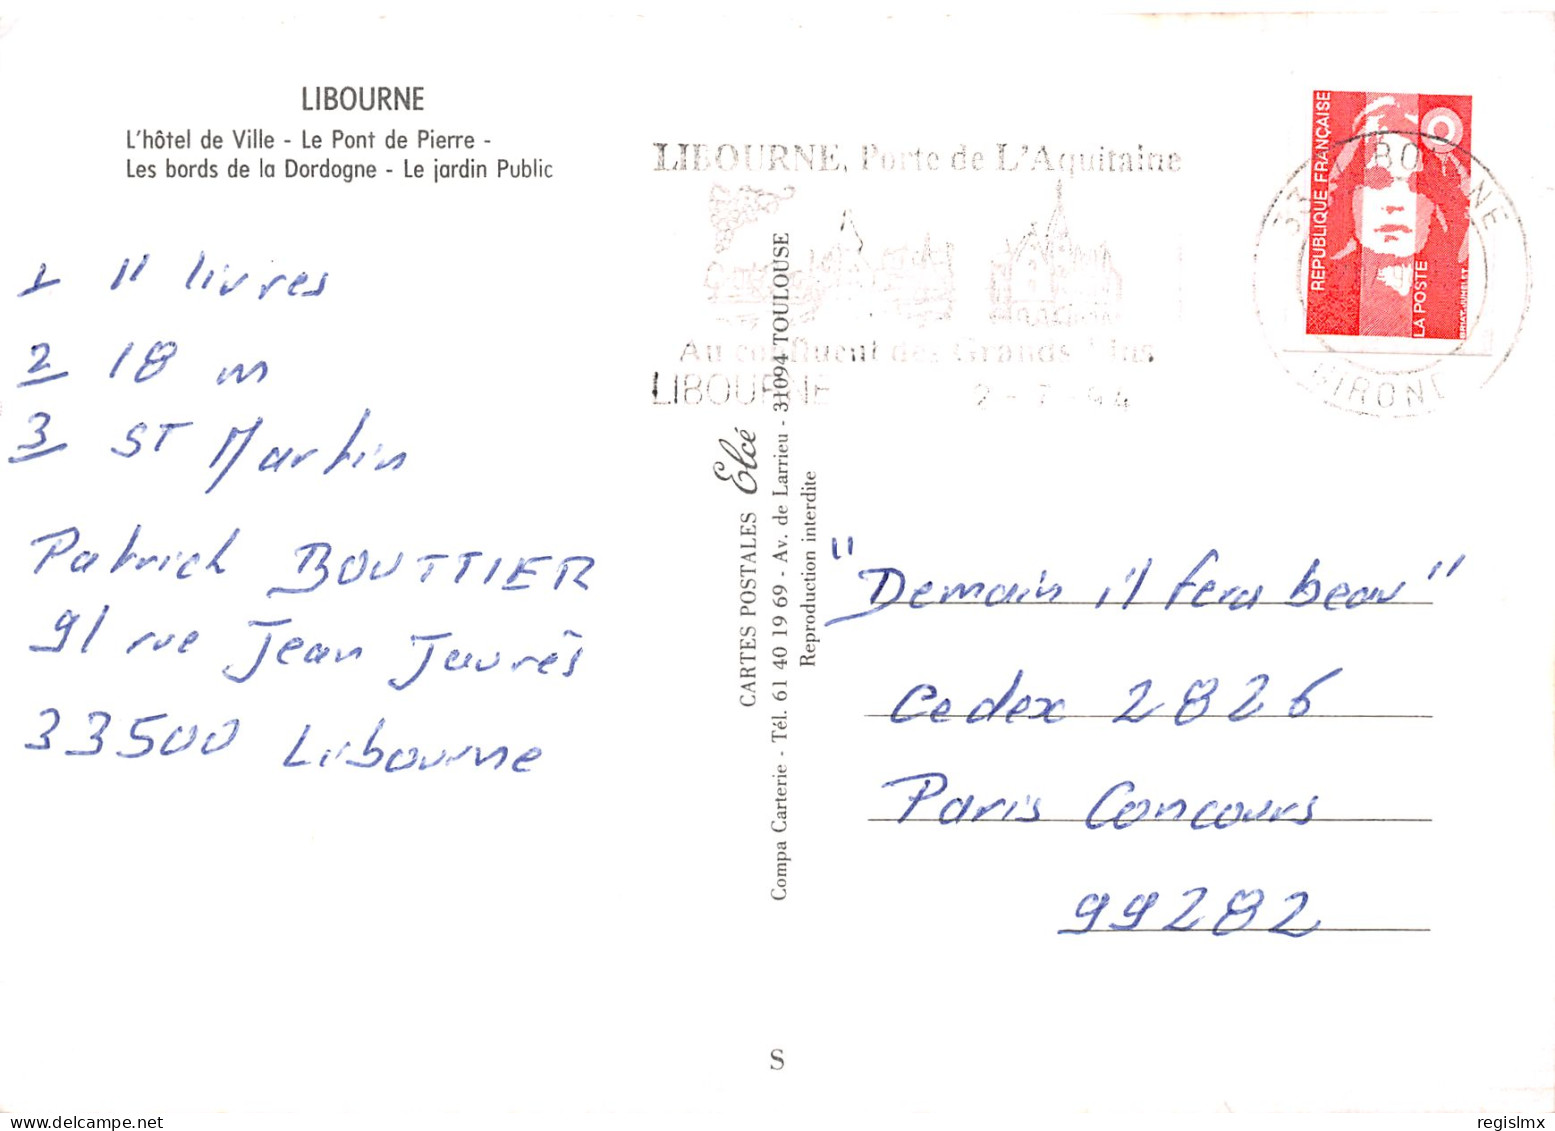 LIBOURNE
L'hôtel de Ville - Le Pont de Pierre -
Les bords de la Dordogne - Le jardin Public
1 11 livres
2 18 m
3 ST Martin
Patrick BOUTTIER
91 rue Jean Jaurès
33500 Libourne
LIBOURNE, Porte de L'Aquitaine
Au confluent des Grands
LIBOURNE 2-7-94
CARTES POSTALES Elcé
Compa Carterie - Tél. 61 40 19 69 - Av. de Larrieu - 31094 TOULOUSE
Reproduction interdite
RÉPUBLIQUE FRANÇAISE
LA POSTE
33 LIBOURNE
GIRONDE
"Demain il fera beau"
Cedex 2826
Paris Concours
99282
S
regislmx